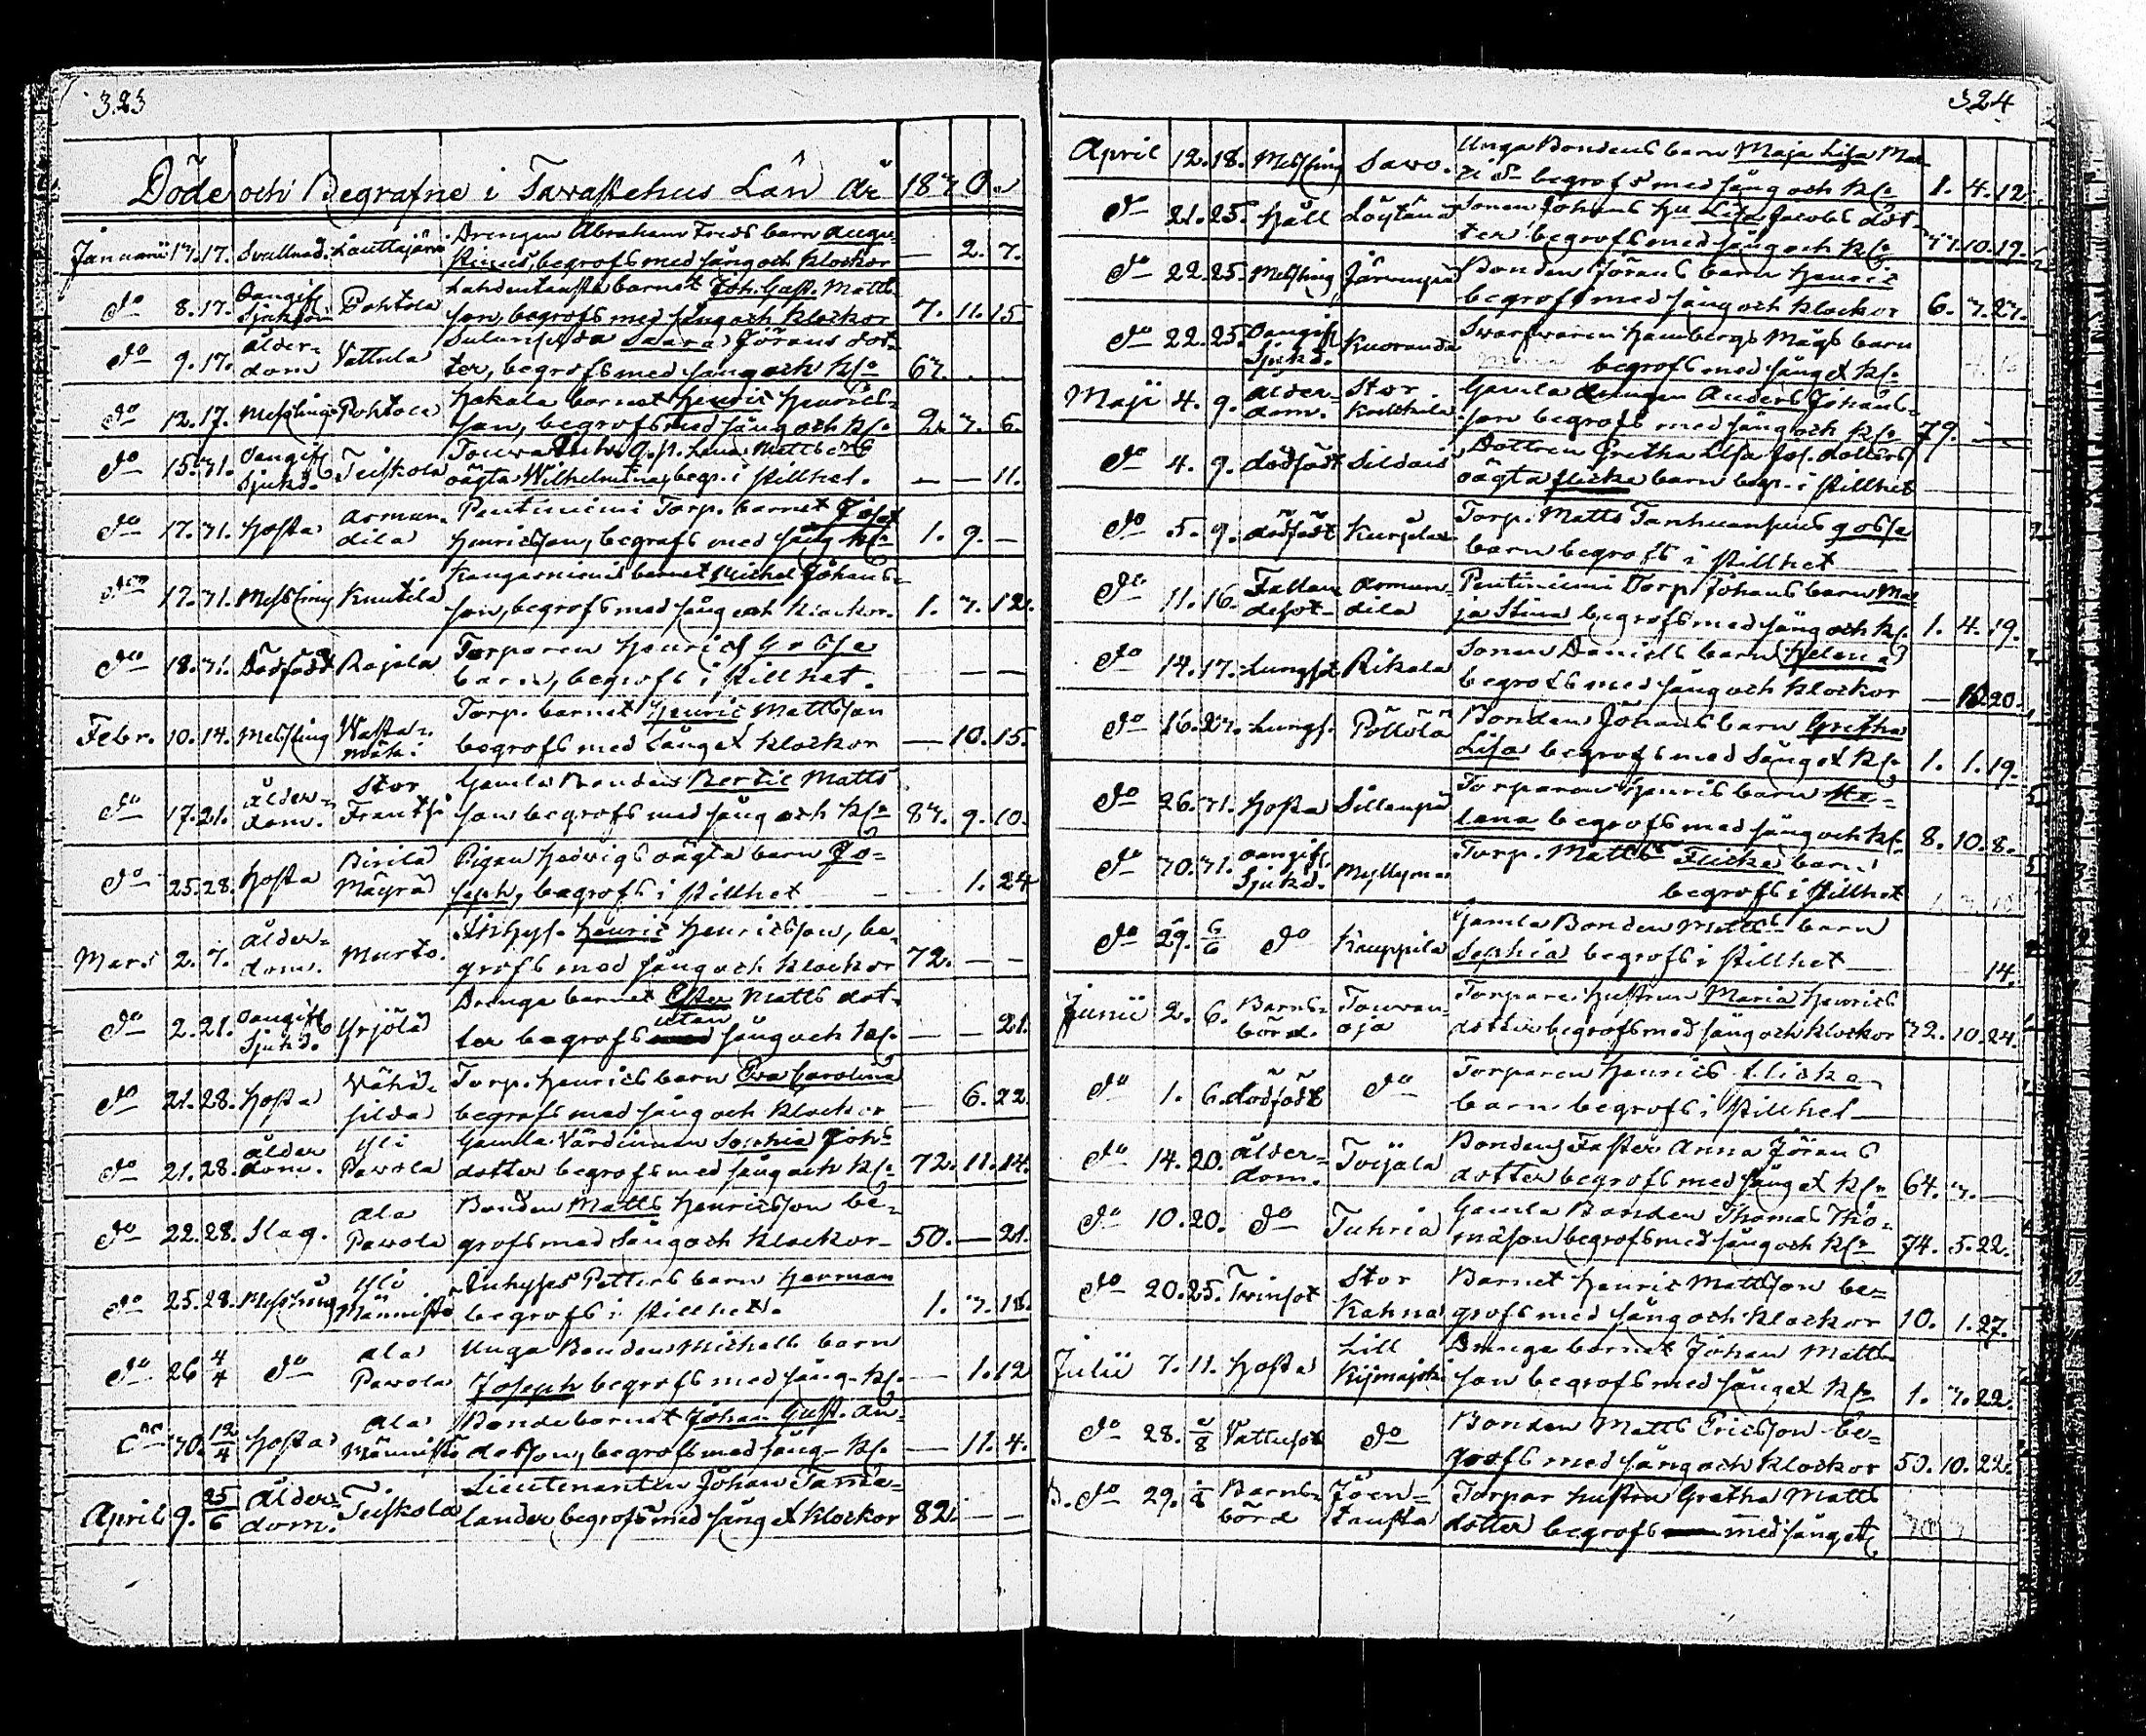 323
Döde och Begrafne i Tavastehus Län år 1830.
Januarii 13. 17. Svullnad. Lauttajärvi Drengen Abraham Freds barn Augu-
stinus, begrofs med sång och klockor — 2. 7.
do 8. 17. Oangifl. Sjukdom Pohtola barnet Joh. Gust. Matts-
son, begrofs med sång och klockor 7. 11. 15.
do 9. 17. ålder-
dom Vattula Saara Jörans dot-
ter, begrofs med sång och kl. 63.
do 12. 17. Messling Pohtola Hakala barnet Henric Henrics-
son, begrofs med sång och kl. 2. 3. 6.
do 15. 31. Oangifl. Sjukd. Teiskola Lena Matts dotts
oägta Wilhelmina, begr. i stillhet. — — 11.
do 17. 31. Hosta Asman-
dila Pentiniemi Torp. barnet Josef
Henricsson, begrafs med sång kl. 1. 9. —
do 17. 31. Messling Knutila Kangasniemi barnet Michel Johans-
son, begrofs med sång och klockor. 1. 3. 12.
do 18. 31. Dödfödt Rajala Torparen Henrics Gosse
barn, begrofs i stillhet. — —
Febr. 10. 14. Messling Torp. barnet Henric Mattsson
begrofs med sång et klockor — 10. 15.
do 17. 21. ålder-
dom. Stor
Frantsi Gamla Bonden Bertil Matts
son begrofs med sång och kl. 83. 9. 10.
do 25. 28. Hosta Pirilä
Mäyrä Pigan Hedvigs oägta barn Jo-
seph, begrofs i stillhet — 1. 24
Mars 2. 7. ålder-
dom. Murto. Inhys. Henric Henricsson, be-
grofs med sång och klockor 72. — —
do 2. 21. Oangifl. Sjukd. Yrjölä Drenge barnet Ester Matts dot-
utan
ter begrofs sång och kl. — — 21.
do 21. 28. Hosta Vähä-
silda Torp. Henrics barn Eva Carolina
begrafs med sång och klockor — 6. 22
do 21. 28. ålder
dom. Yli
Pavola Gamla Värdinnan Sophia Joh:
dotter begrofs med sång och kl. 72. 11. 14.
do 22. 28. Slag. Ala
Pavola Bonden Matts Henricsson be-
grofs med sång och klockor 50. — 21.
do 25. 28. Messling Yli
Männistö Inhyses Petters barn Herman
begrofs i stillhet. 1. 3. 18.
do 26 4/4 do Ala
Pavola Unga Bonden Michels barn
Joseph begrofs med sång kl. — 1. 12
do 30. 12/4 Hosta Ala
Männistö Bonde barnet Johan Gust. An-
dersson, begrofs med sång kl. — 11. 4.
April 9. 25/6 Ålder-
dom. Teiskola Lieutenanten Johan Tande-
lander begrofs med sång et klockor 82. — —
324
April 12. 18. Messling Savo. Unga Bondens barn Maja Lisa Mat-
begrofs med sång och kl. 1. 4. 12.
do 21. 25. Håll Löytänä Sonen Johans Hu Lisa Jacobs dot-
ter begrofs med sång och kl. 33. 10. 19.
do 22. 25. Messling Järvenpää Bonden Jörans barn Henric
begrofs med sång och klockor 6. 3. 23.
do 22. 25. Oangifl. Sjukd. Kuoranda Svarfvaren Hambergs Mågs barn
begrofs med sång et kl.
Maji 4. 9. Ålder-
dom. Stor Gamla Drengen Anders Johans-
son begrofs med sång och kl. 79. —
do 4. 9. dödfödt Sildois Dottren Gretha Lisa Jos. dotters
oägta flicke barn begr. i stillhet
do 5. 9. dödfödt Kurpila Torp. Matts Tanhuanpääs gosse
barn begrofs i stillhet
do 11. 16. Fallan-
desot Asman-
dila Pentiniemi Torp Johans barn Ma-
ja Stina begrofs med sång och kl. 1. 4. 19.
do 14. 17. Lungsot Rikala Sonen Daniels barn Helena
begrofs med sång och klockor — 20.
do 16. 23. Lungs. Pöllölä Bonden Johans barn Gretha
Lisa begrofs med sång et kl. 1. 1. 19.
do 26. 31. Hosta Sillanpää Torparen Henrics barn He-
lena begrofs med sång och kl. 8. 10. 8.
do 30. 31. Oangifl. Sjukd. Myllymaa Torp. Matts Flicke barn
begrofs i stillhet
do 29. 6/6 do Kauppila Gamla Bonden Matts barn
Sophia begrofs i stillhet 14.
Junii 2. 6. Barns-
börd. Torpare hustrun Maria Henrics
dotter begrofs med sång och klockor 32. 10. 24.
do 1. 6. dödfödt do Torparen Henrics flicke
barn begrofs i stillhet
do 14. 20. Ålder-
dom. Torjala Bondens Faster Anna Jörans
dotter begrofs med sång et kl. 64. 3. —
do 10. 20. do Tuhria Gamla Bonden Thomas Tho-
masson begrofs med sång och kl. 74. 5. 22.
do 20. 25. Tvinsot Stor
Kahna Barnet Henric Mattsson be-
grofs med sång och klockor 10. 1. 27.
Julii 7. 11. Hosta Lill Drenge barnet Johan Matts
son begrofs med sång et kl. 1. 3. 22.
do 28. 8 Vattusot do Bonden Matts Ericsson be-
grofs med sång och klockor 53. 10. 22.
B. do 29. 8 Barns-
börd Jöen-
tausta Torpar hustrun Gretha Matts
dotter begrofs med sång et